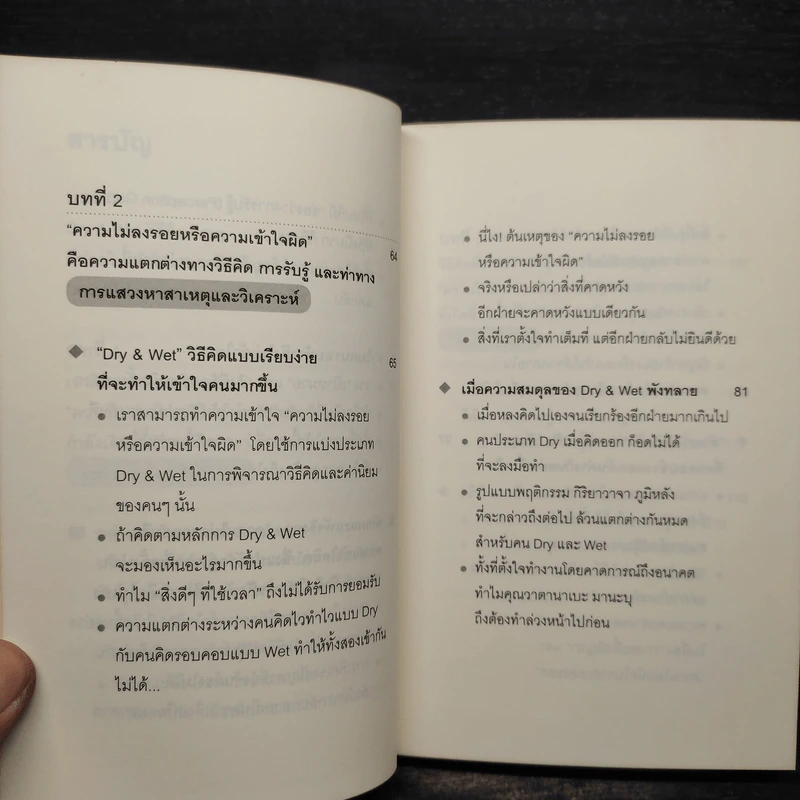 บทที่ 2
“ความไม่ลงรอยหรือความเข้าใจผิด” 64
คือความแตกต่างทางวิธีคิด การรับรู้ และท่าทาง
การแสวงหาสาเหตุและวิเคราะห์
◆ “Dry & Wet” วิธีคิดแบบเรียบง่าย 65
ที่จะทำให้เข้าใจคนมากขึ้น
● เราสามารถทำความเข้าใจ “ความไม่ลงรอย
หรือความเข้าใจผิด” โดยใช้การแบ่งประเภท
Dry & Wet ในการพิจารณาวิธีคิดและค่านิยม
ของคนๆ นั้น
● ถ้าคิดตามหลักการ Dry & Wet
จะมองเห็นอะไรมากขึ้น
● ทำไม “สิ่งดีๆ ที่ใช้เวลา” ถึงไม่ได้รับการยอมรับ
● ความแตกต่างระหว่างคนคิดไวทำไวแบบ Dry
กับคนคิดรอบคอบแบบ Wet ทำให้ทั้งสองเข้ากัน
ไม่ได้...
● นี่ไง! ต้นเหตุของ “ความไม่ลงรอย
หรือความเข้าใจผิด”
● จริงหรือเปล่าว่าสิ่งที่คาดหวัง
อีกฝ่ายจะคาดหวังแบบเดียวกัน
● สิ่งที่เราตั้งใจทำเต็มที่ แต่อีกฝ่ายกลับไม่ยินดีด้วย
◆ เมื่อความสมดุลของ Dry & Wet พังทลาย 81
● เมื่อหลงคิดไปเองจนเรียกร้องอีกฝ่ายมากเกินไป
● คนประเภท Dry เมื่อคิดออก ก็อดไม่ได้
ที่จะลงมือทำ
● รูปแบบพฤติกรรม กิริยาวาจา ภูมิหลัง
ที่จะกล่าวถึงต่อไป ล้วนแตกต่างกันหมด
สำหรับคน Dry และ Wet
● ทั้งที่ตั้งใจทำงานโดยคาดการณ์ถึงอนาคต
ทำไมคุณวาตานาเบะ มานะบุ
ถึงต้องทำล่วงหน้าไปก่อน